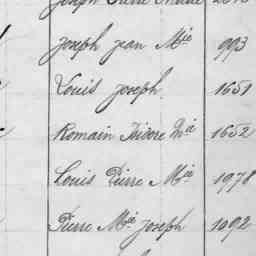 Joseph Jean Mie 993
Louis Joseph. 1651
Romain Isidore Má 1652
Louis Pierre Mie 1978
Pierre Mie Joseph 1092